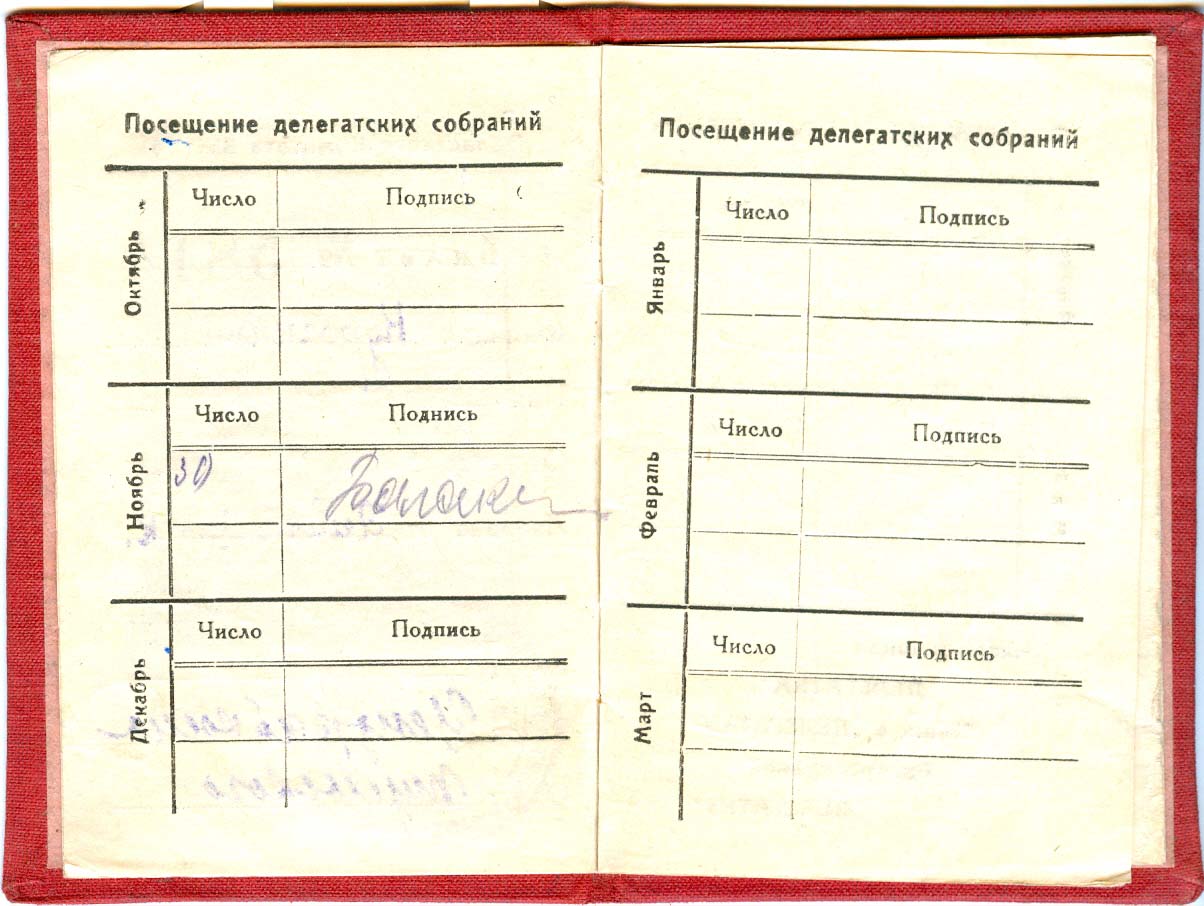 Посещение делегатских собраний
Октябрь
Число Подпись
Ноябрь
Число Поднись
30
Декабрь
Число Подпись
Посещение делегатских собраний
Январь
Число Подпись
Февраль
Число Подпись
Март
Число Подпись